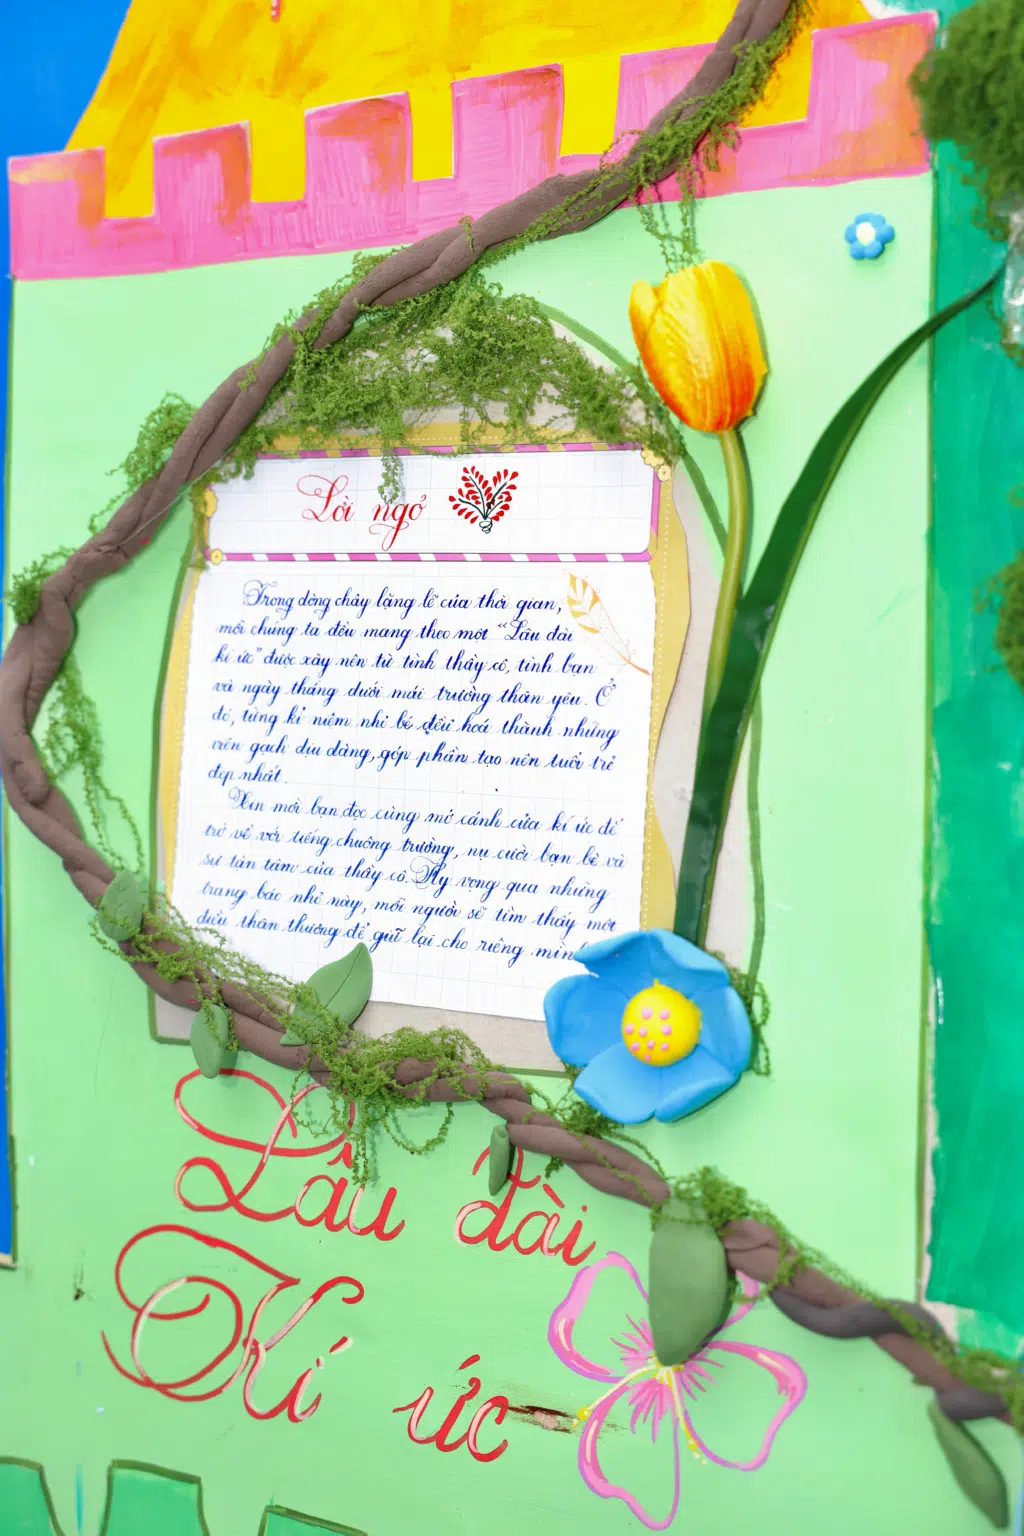 Lời ngỏ
Trong dòng chảy lặng lẽ của thời gian,
mỗi chúng ta đều mang theo một "Lâu đài
kí ức" được xây nên từ tình thầy cô, tình bạn
và ngày tháng dưới mái trường thân yêu. Ở
đó, từng kỉ niệm nhỏ bé đều hoá thành những
viên gạch dịu dàng, góp phần tạo nên tuổi trẻ
đẹp nhất.
Xin mời bạn đọc cùng mở cánh cửa kí ức để
trở về với tiếng chuông trường, nụ cười bạn bè và
sự tận tâm của thầy cô. Hy vọng qua những
trang báo nhỏ này, mỗi người sẽ tìm thấy một
điều thân thương để giữ lại cho riêng mình
Lâu đài
Kí ức